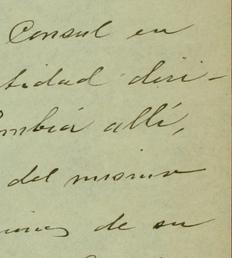 Consul en
tidad diri-
ombia allí,
del mismo
de su